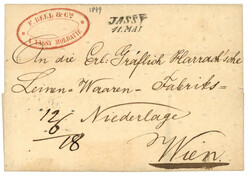 1849
F. BELL & Co.
A YASSY MOLDAVIE
JASSY
11. MAI
An die Erl: Gräflich Harrach'sche
Leinen-Waaren-Fabriks-
Niederlage
12/6
18
Wien.